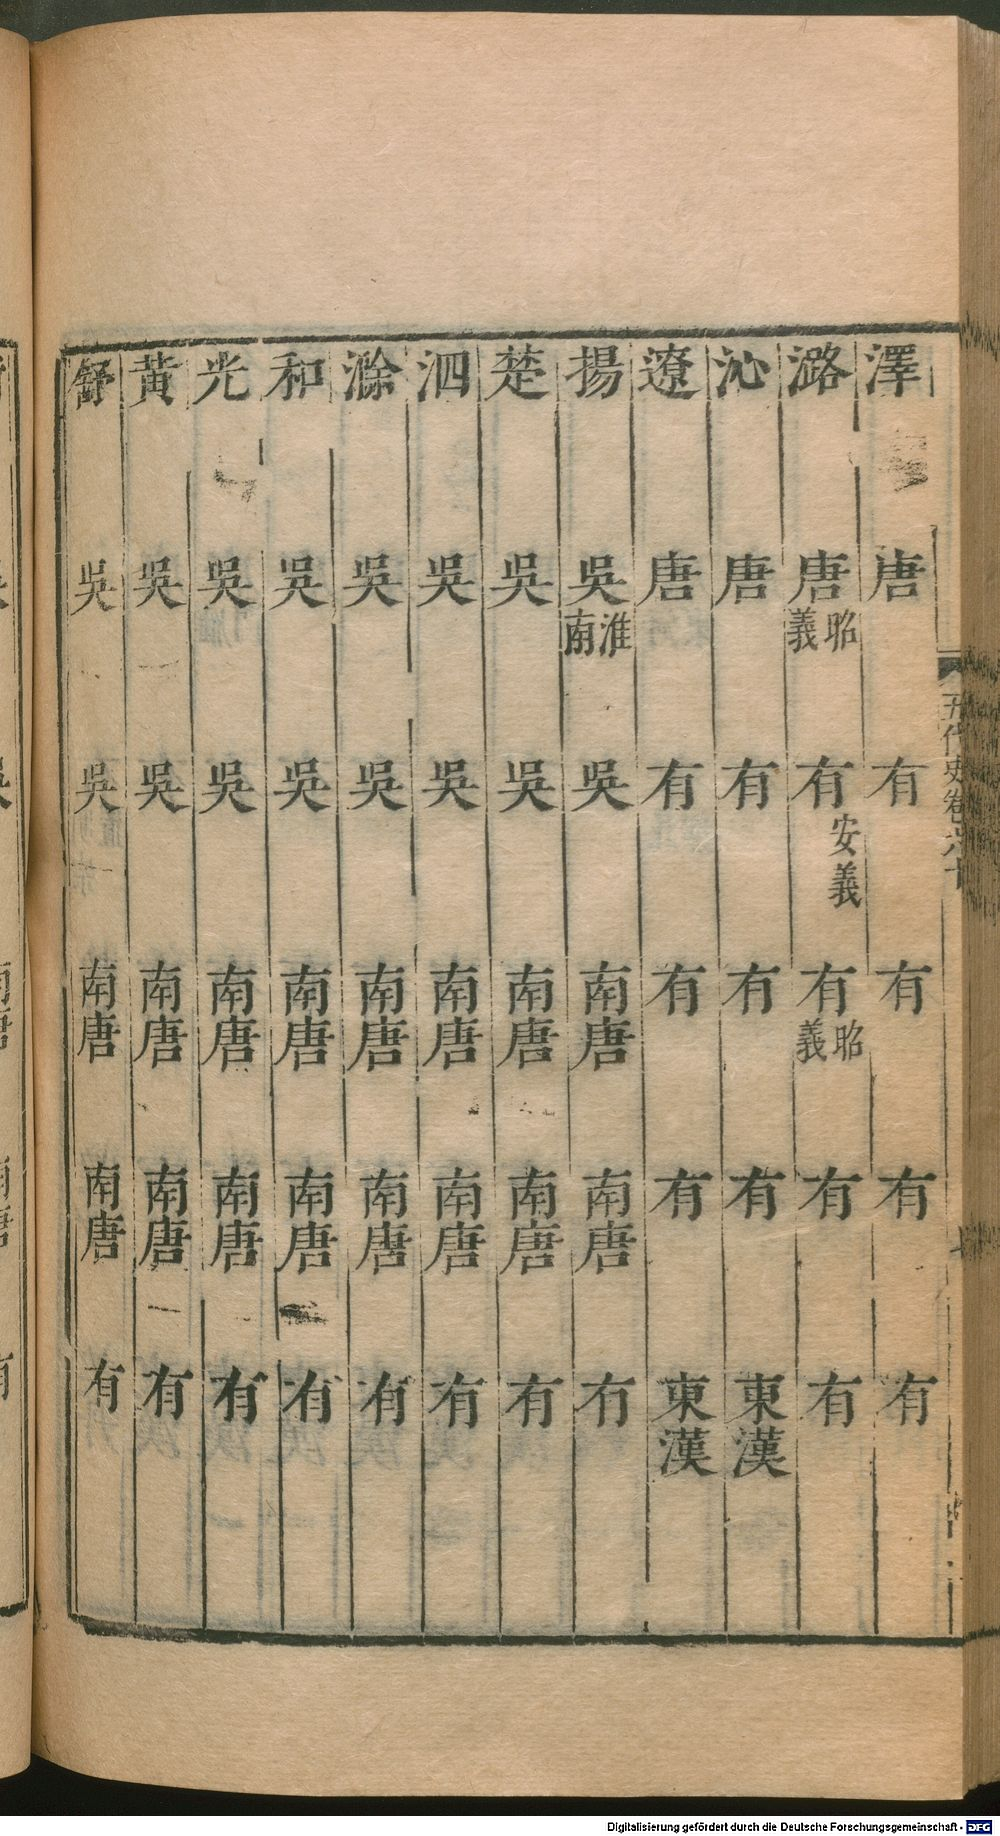 澤 唐 有 有 有 有
潞 唐昭義 有安義 有昭義 有 有
沁 唐 有 有 有 東漢
遼 唐 有 有 有 東漢
揚 吳淮南 吳 南唐 南唐 有
楚 吳 吳 南唐 南唐 有
泗 吳 吳 南唐 南唐 有
滁 吳 吳 南唐 南唐 有
和 吳 吳 南唐 南唐 有
光 吳 吳 南唐 南唐 有
黃 吳 吳 南唐 南唐 有
舒 吳 吳 南唐 南唐 有
五代史卷六十
Digitalisierung gefördert durch die Deutsche Forschungsgemeinschaft - DFG